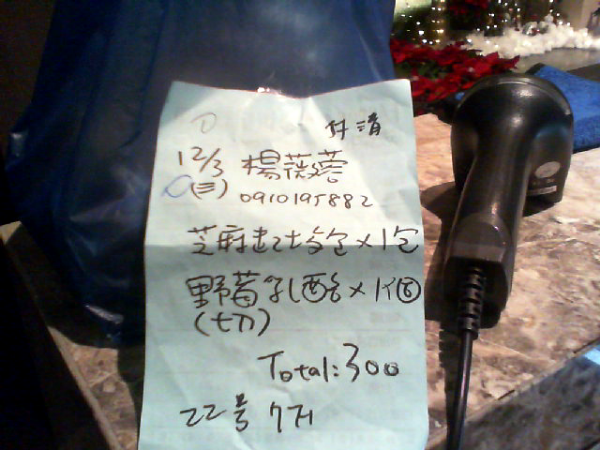 付清
12/3 楊薇蓉
(三) 0910195882
芝麻起士貝包×1包
野莓乳酪×1個
(切)
Total:300
22号 7H